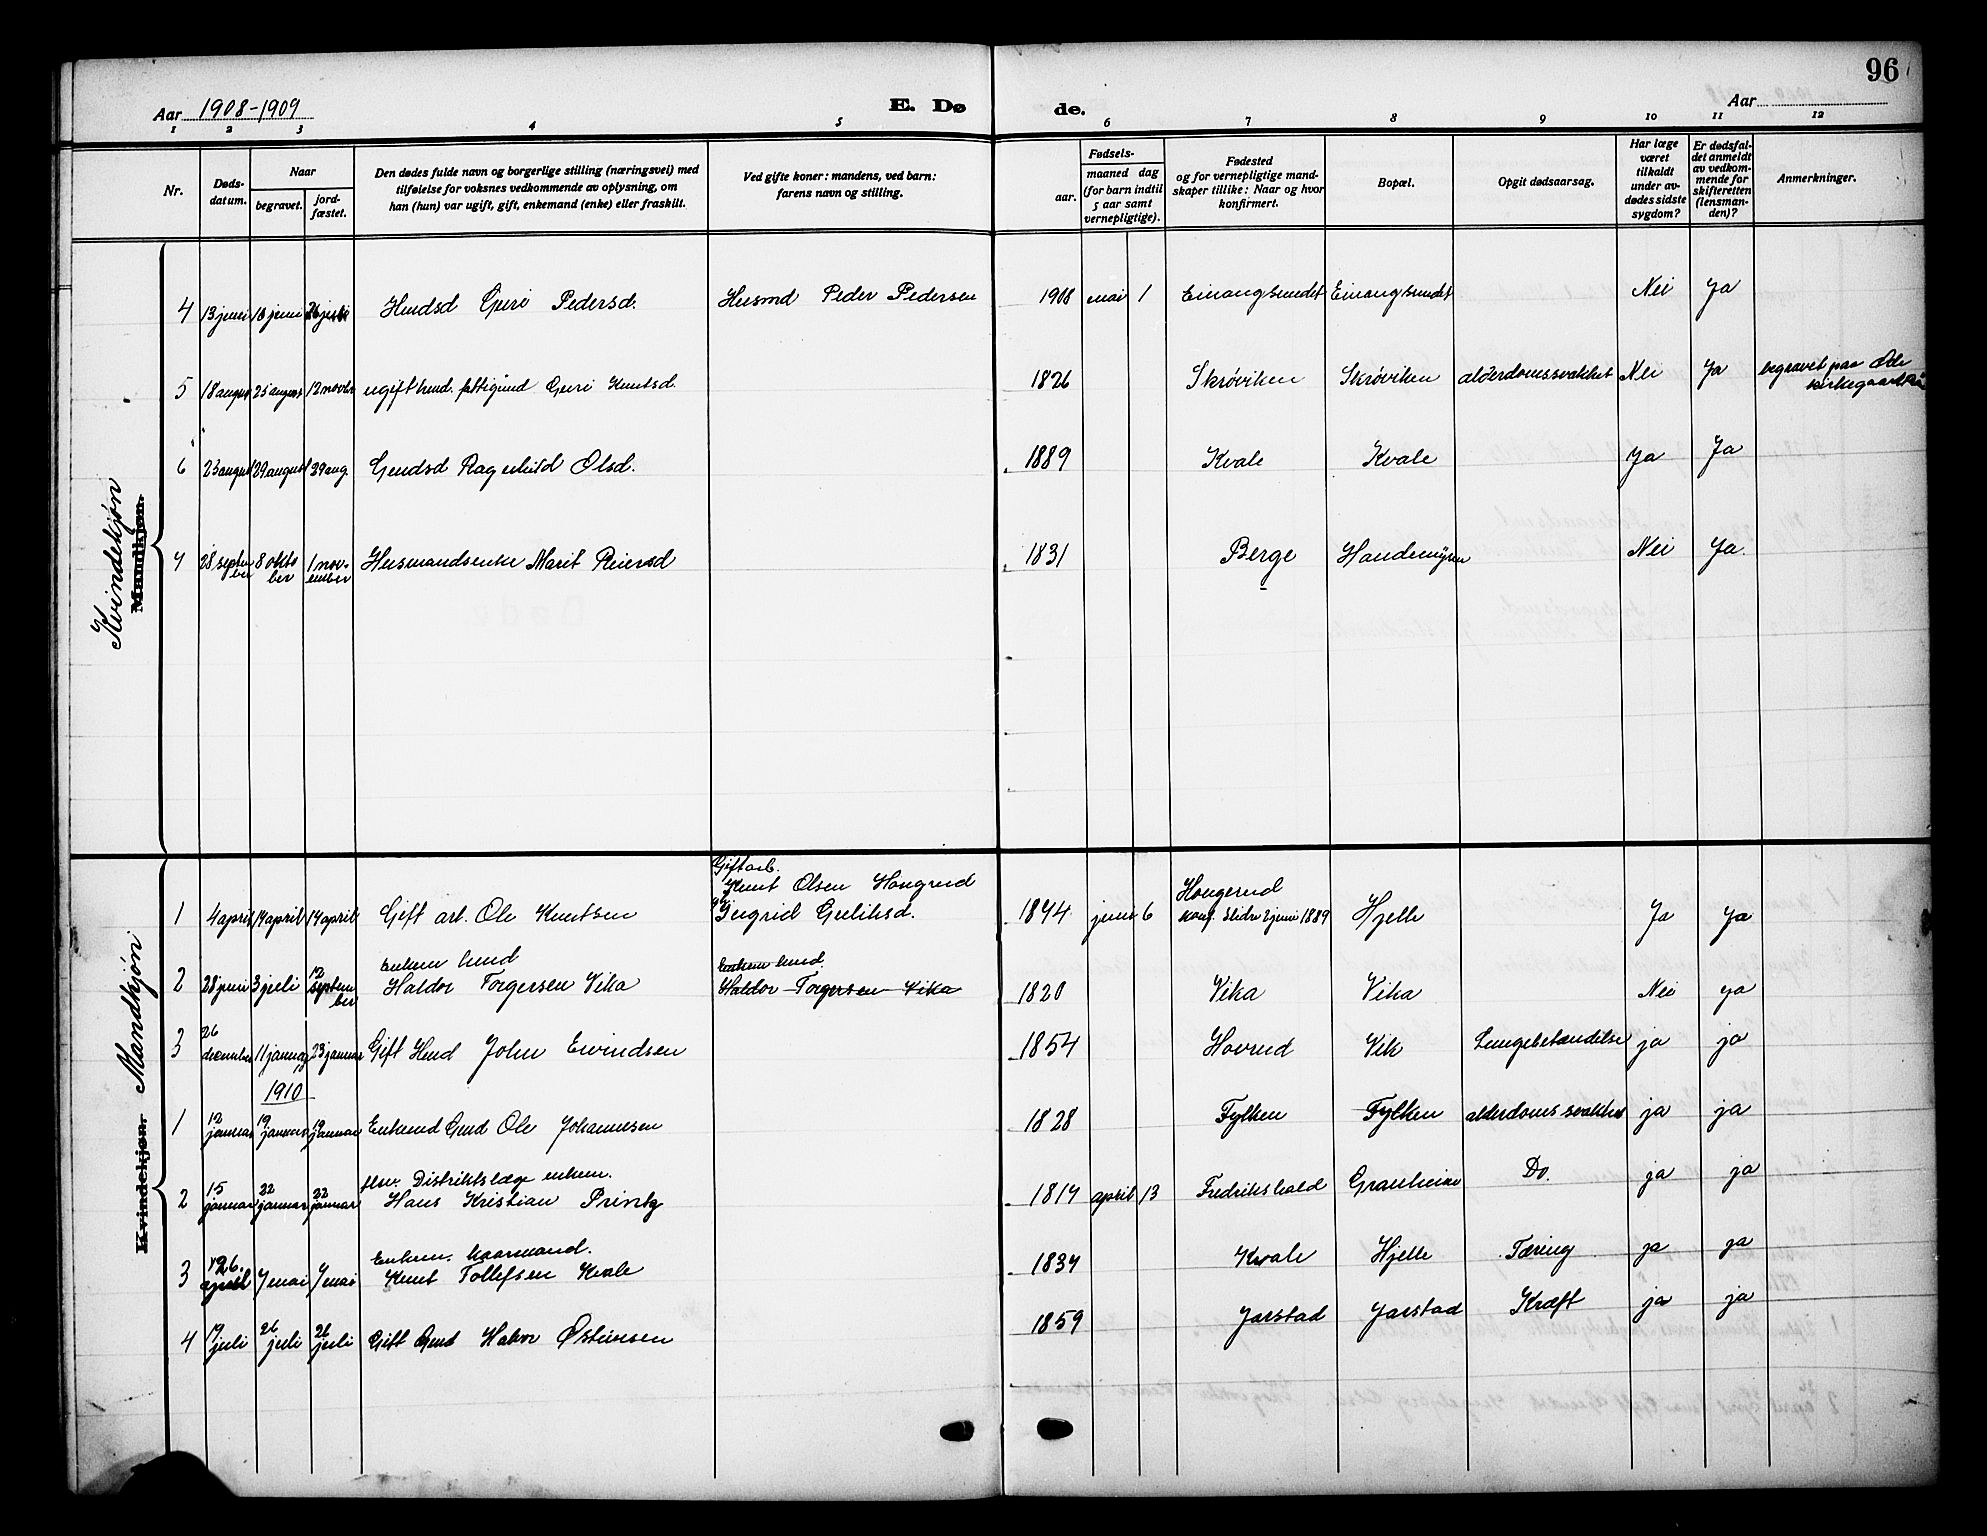 96
Aar 1908-1909
E. Dø
de.
Aar
1 2 3 4 5 6 7 8 9 10 11 12
Nr.
Døds-
datum.
Naar
begravet.
jord-
fæstet.
Den dødes fulde navn og borgerlige stilling (næringsvei) med
tilføielse for voksnes vedkommende av oplysning, om
han (hun) var ugift, gift, enkemand (enke) eller fraskilt.
Ved gifte koner: mandens, ved barn:
farens navn og stilling.
Fødsels-
aar.
maaned dag
(for barn indtil
5 aar samt
vernepligtige).
Fødested
og for vernepligtige mand-
skaper tillike: Naar og hvor
konfirmert.
Bopæl.
Opgit dødsaarsag.
Har læge
været
tilkaldt
under av-
dødes sidste
sygdom?
Er dødsfal-
det anmeldt
av vedkom-
mende for
skifteretten
(lensman-
den)?
Anmerkninger.
Kvindekjøn
Mandkjøn.
4 13 juni 16 juni 26 juli Husd Guri Pedersd. Husmd Peder Pedersen 1908 mai 1 Einangsundet Einangsundet Nei Ja
5 18 august 25 august 12 novbr ugift hmd. fattigund Guri Knutsd. 1826 Skrøviken Skrøviken alderdomssvakhet Nei Ja begravet paa Øde
kirkegaard
6 23 august 29 august 29 aug. Gmdsd Ragnhild Olsd. 1889 Kvale Kvale Ja Ja
7 28 septem
ber 8 okto
ber 1 nov-
ember Husmandsenke Marit Reiersd 1831 Berge Handemyren Nei Ja.
Mandkjøn.
Kvindekjøn.
Gift arb.
Knut Olsen Haugrud
1 4 april 14 april 14 april Gift arb. Ole Knutsen Ingrid Guliksd. 1874 juni 6 Haugerud
konf. Slidre 2 juni 1889 Hjelle Ja Ja
Enkem hmd
Enkem hmd.
2 28 juni 3 juli 12
septem
ber Haldor Torgersen Vika Haldor Torgersen Vika 1820 Vika Vika Nei ja
3 26
december 11 januar 23 januar Gift Hmd John Eivindsen 1854 Hovrud Vik Lungebetændelse ja ja
1910
1 12
januar 19
januar 19
januar Enkemd Gmd Ole Johannesen 1828 Fylken Fylken alderdomssvakhet ja ja
2 15
januar 22
januar 22
januar fhv. Distriktslæge enkem.
Hans Kristian Printz 1817 april 13 Fredrikshald Granheim Do. ja ja
3 26.
april 7 mai 7 mai Enkem. kaarmand.
Knut Tollefsen Kvale 1834 Kvale Hjelle Tæring ja ja
4 19
juli 26
juli 26
juli Gift Gmd Halvor Østensen 1859 Jarstad Jarstad Kræft ja ja